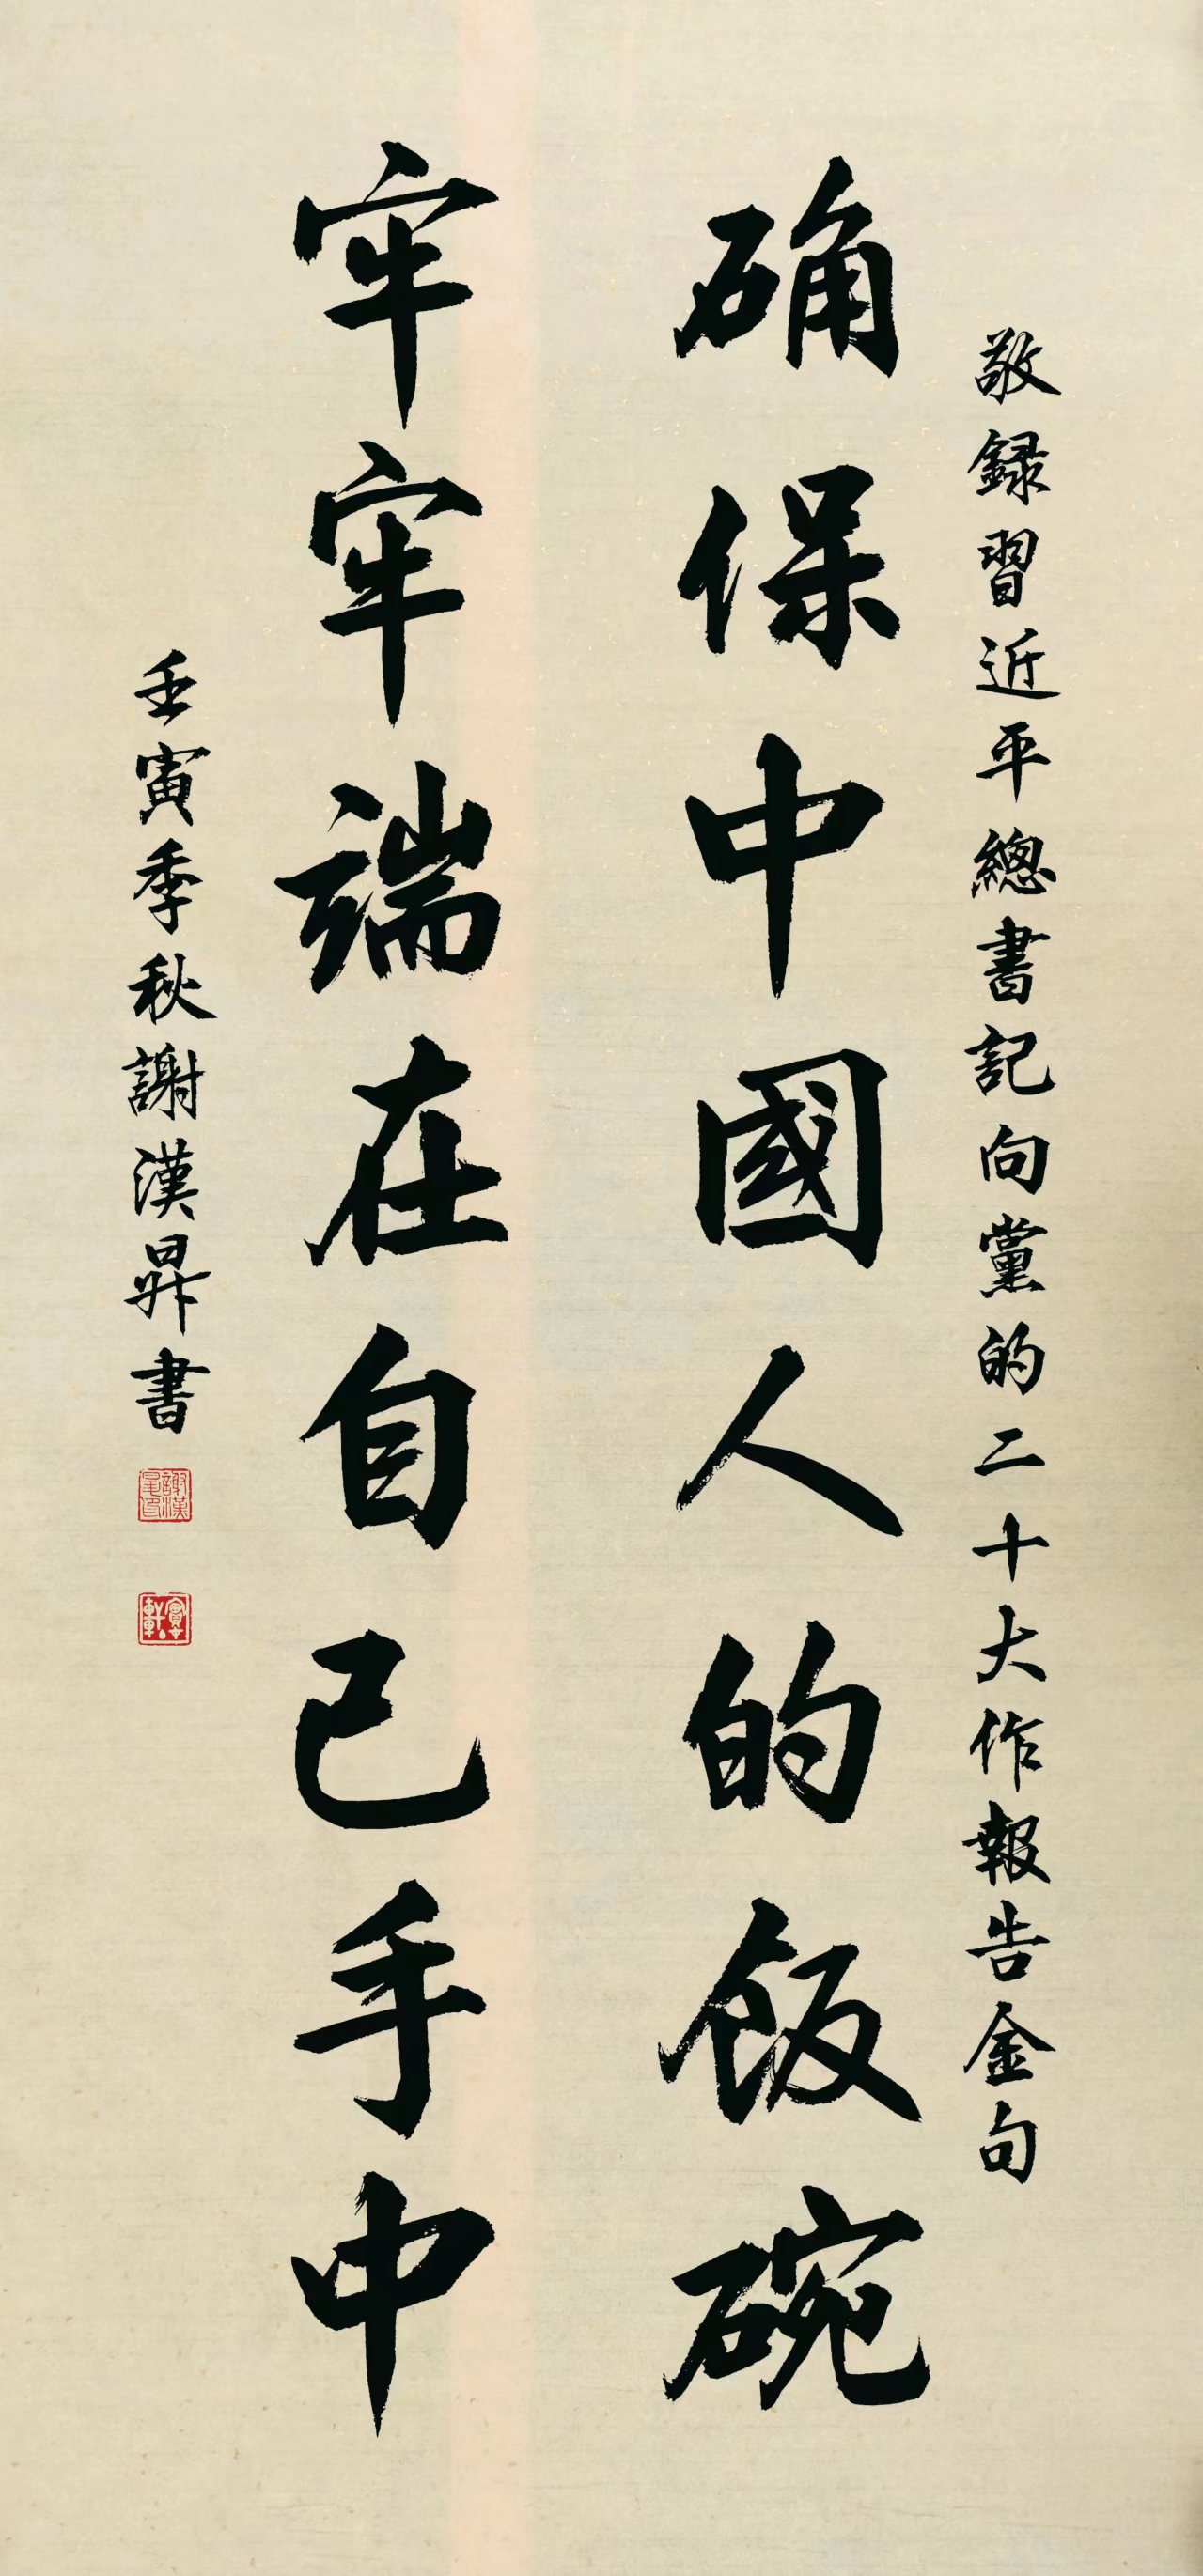 敬録習近平總書記向黨的二十大作報告金句
确保中國人的飯碗
牢牢端在自己手中
壬寅季秋謝漢昇書